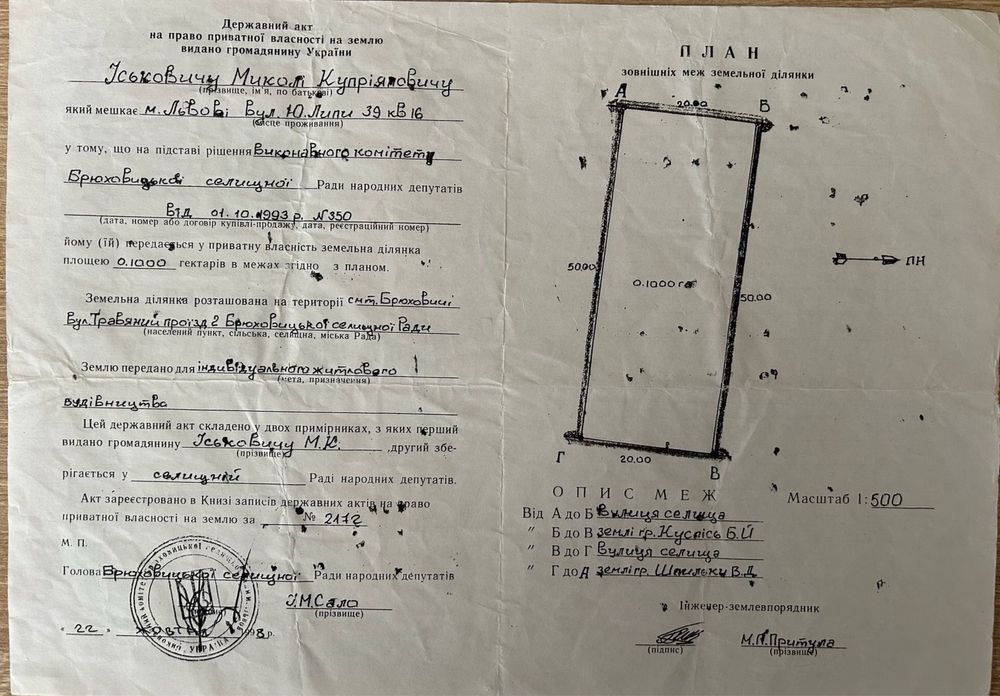 Державний акт
на право приватної власності на землю
видано громадянину України
Іськовичу Миколі Купріяновичу
(прізвище, ім'я, по батькові)
який мешкає м. Львові вул. Ю. Липи 39 кв 16
(місце проживання)
у тому, що на підставі рішення Виконавчого комітету
Брюховицької селищної Ради народних депутатів
від 01.10.1993 р. №350
(дата, номер або договір купівлі-продажу, дата, реєстраційний номер)
йому (їй) передається у приватну власність земельна ділянка
площею 0.1000 гектарів в межах згідно з планом.
Земельна ділянка розташована на території смт. Брюховичі
вул. Травяний проїзд 2 Брюховицької селищної Ради
(населений пункт, сільська, селищна, міська Рада)
Землю передано для індивідуального житлового
(мета, призначення)
будівництва
Цей державний акт складено у двох примірниках, з яких перший
видано громадянину Іськовичу М.К. , другий збе-
(прізвище)
рігається у селищній Раді народних депутатів.
Акт зареєстровано в Книзі записів державних актів на право
приватної власності на землю за № 2172
М. П.
Голова Брюховицької селищної Ради народних депутатів
І.М. Сало
(прізвище)
"22" жовтня 1993 р.
УКРАЇНА
ПЛАН
зовнішніх меж земельної ділянки
А 20.00 Б
ПН
50.00
0.1000 га
50.00
Г 20.00 В
ОПИС МЕЖ Масштаб 1:500
Від А до Б Вулиця селища
" Б до В землі гр. Куспісь Б.Й
" В до Г Вулиця селища
" Г до А землі гр. Шпильки В.Д.
Інженер-землевпорядник
М.П. Притула
(підпис) (прізвище)